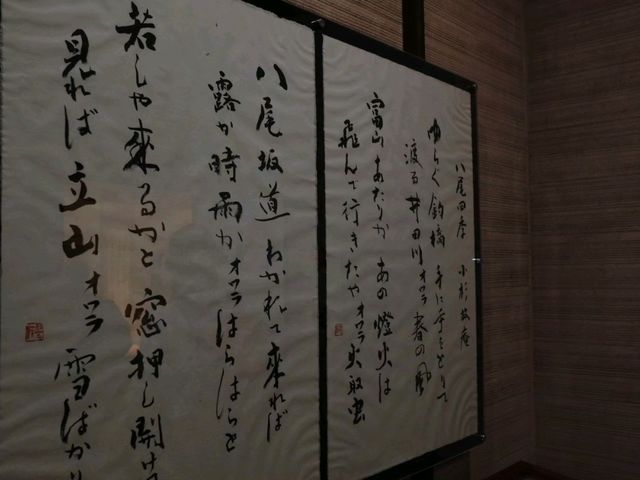 八尾四季 小杉放庵
ゆらぐ釣橋 手に手をとりて
渡る井田川 オワラ 春の風
富山あたりか あの燈火は
飛んで行きたや オワラ 火取虫
八尾坂道 わかれて來れば
露か時雨か オワラ はらはらと
若しや來るかと 窓押し開けて
見れば 立山 オワラ 雪ばかり